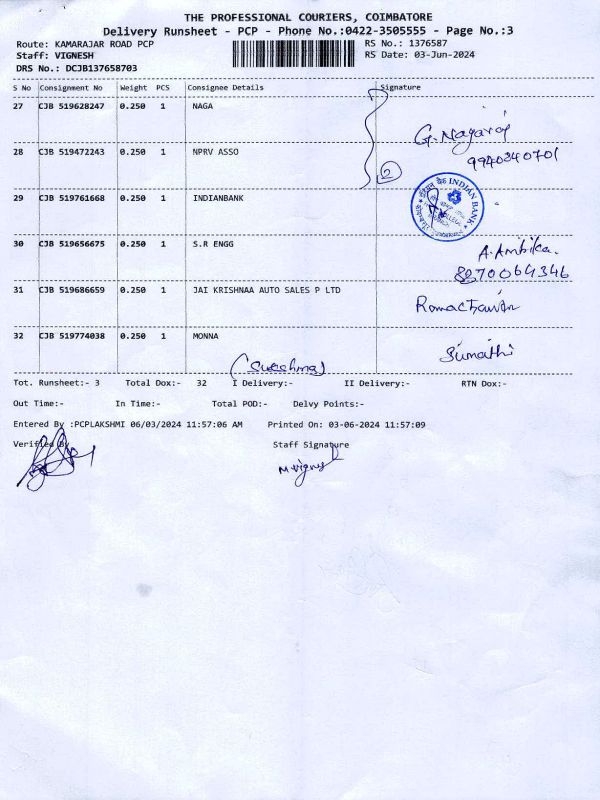 THE PROFESSIONAL COURIERS, COIMBATORE
Delivery Runsheet - PCP - Phone No.:0422-3505555 - Page No.:3
Route: KAMARAJAR ROAD PCP RS No.: 1376587
Staff: VIGNESH RS Date: 03-Jun-2024
DRS No.: DCJB137658703
S No Consignment No Weight PCS Consignee Details Signature
27 CJB 519628247 0.250 1 NAGA
G. Nagaraj
28 CJB 519472243 0.250 1 NPRV ASSO 9940340701
2
29 CJB 519761668 0.250 1 INDIANBANK
INDIAN BANK
30 CJB 519656675 0.250 1 S.R ENGG A. Ambika.
8270064346
31 CJB 519686659 0.250 1 JAI KRISHNAA AUTO SALES P LTD
32 CJB 519774038 0.250 1 MONNA
Sumathi
Tot. Runsheet:- 3 Total Dox:- 32 I Delivery:- II Delivery:- RTN Dox:-
Out Time:- In Time:- Total POD:- Delvy Points:-
Entered By :PCPLAKSHMI 06/03/2024 11:57:06 AM Printed On: 03-06-2024 11:57:09
Verified By Staff Signature
M. Vignesh